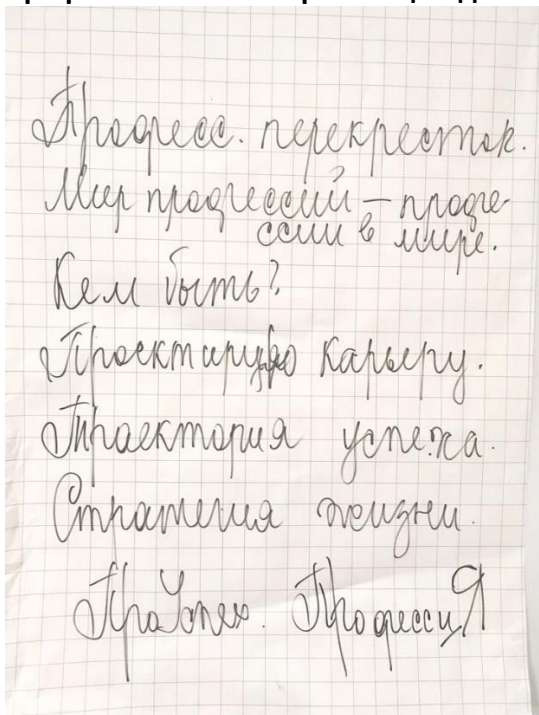 Професс. перекресток.
Мир профессий – профе-
ссии в мире.
Кем быть?
Проектирую карьеру.
Траектория успеха.
Стратегия жизни.
ПроУспех. ПрофессиЯ